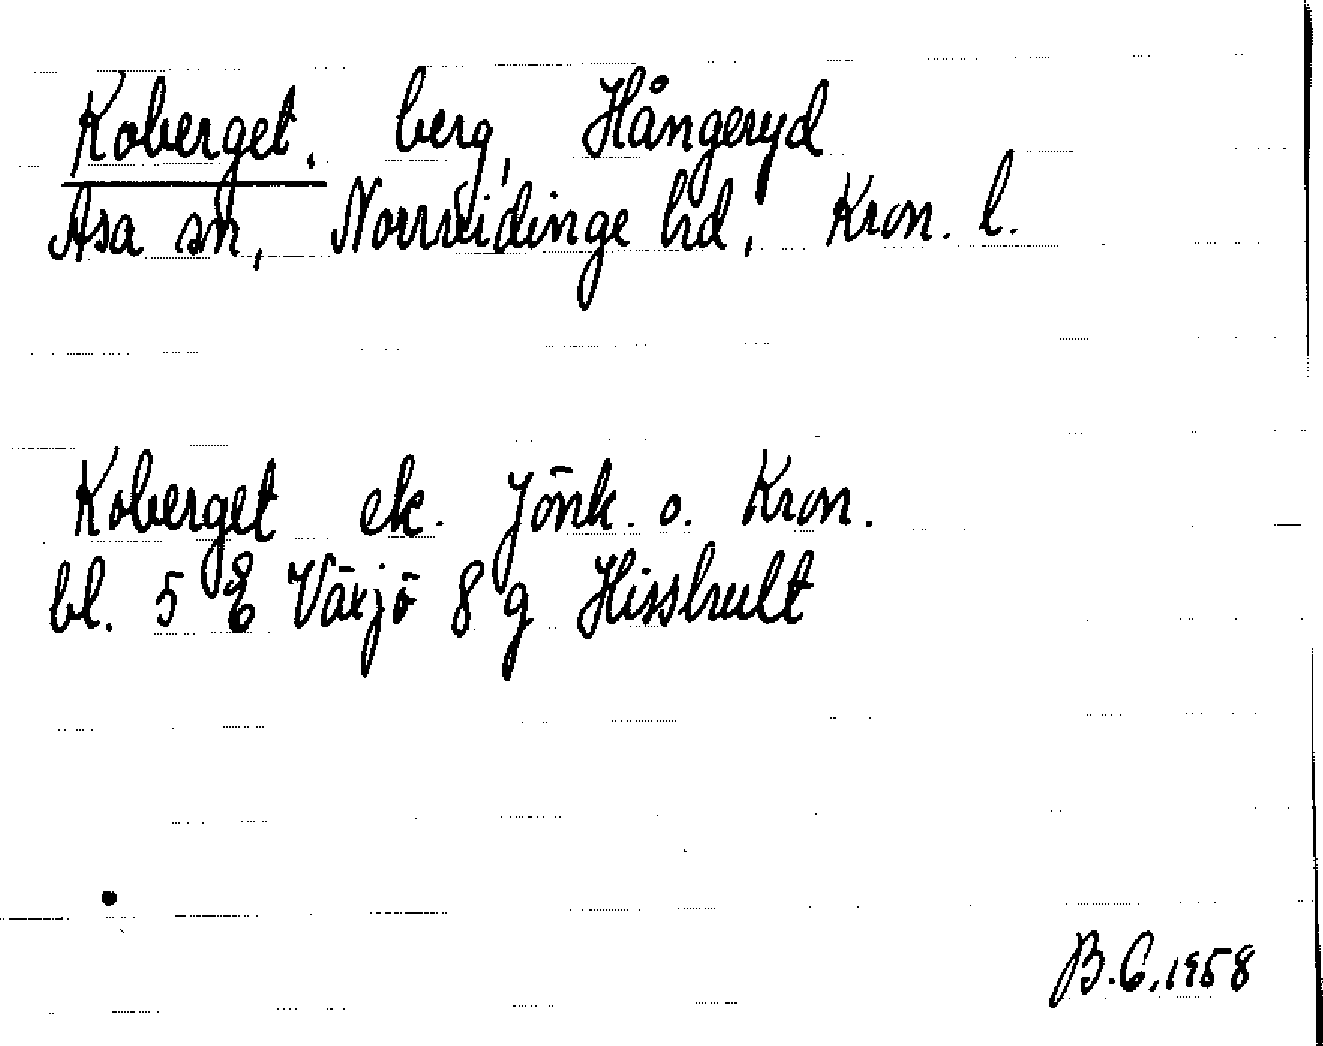 Koberget, berg, Hångeryd
Asa sn, Norrvidinge hd, Kron. l.
Koberget ek. Jönk. o. Kron.
bl. 5 E Växjö 8 g Hisshult
B.C, 1958